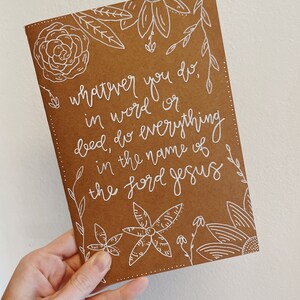 whatever you do,
in word or
deed, do everything
in the name of
the Lord Jesus